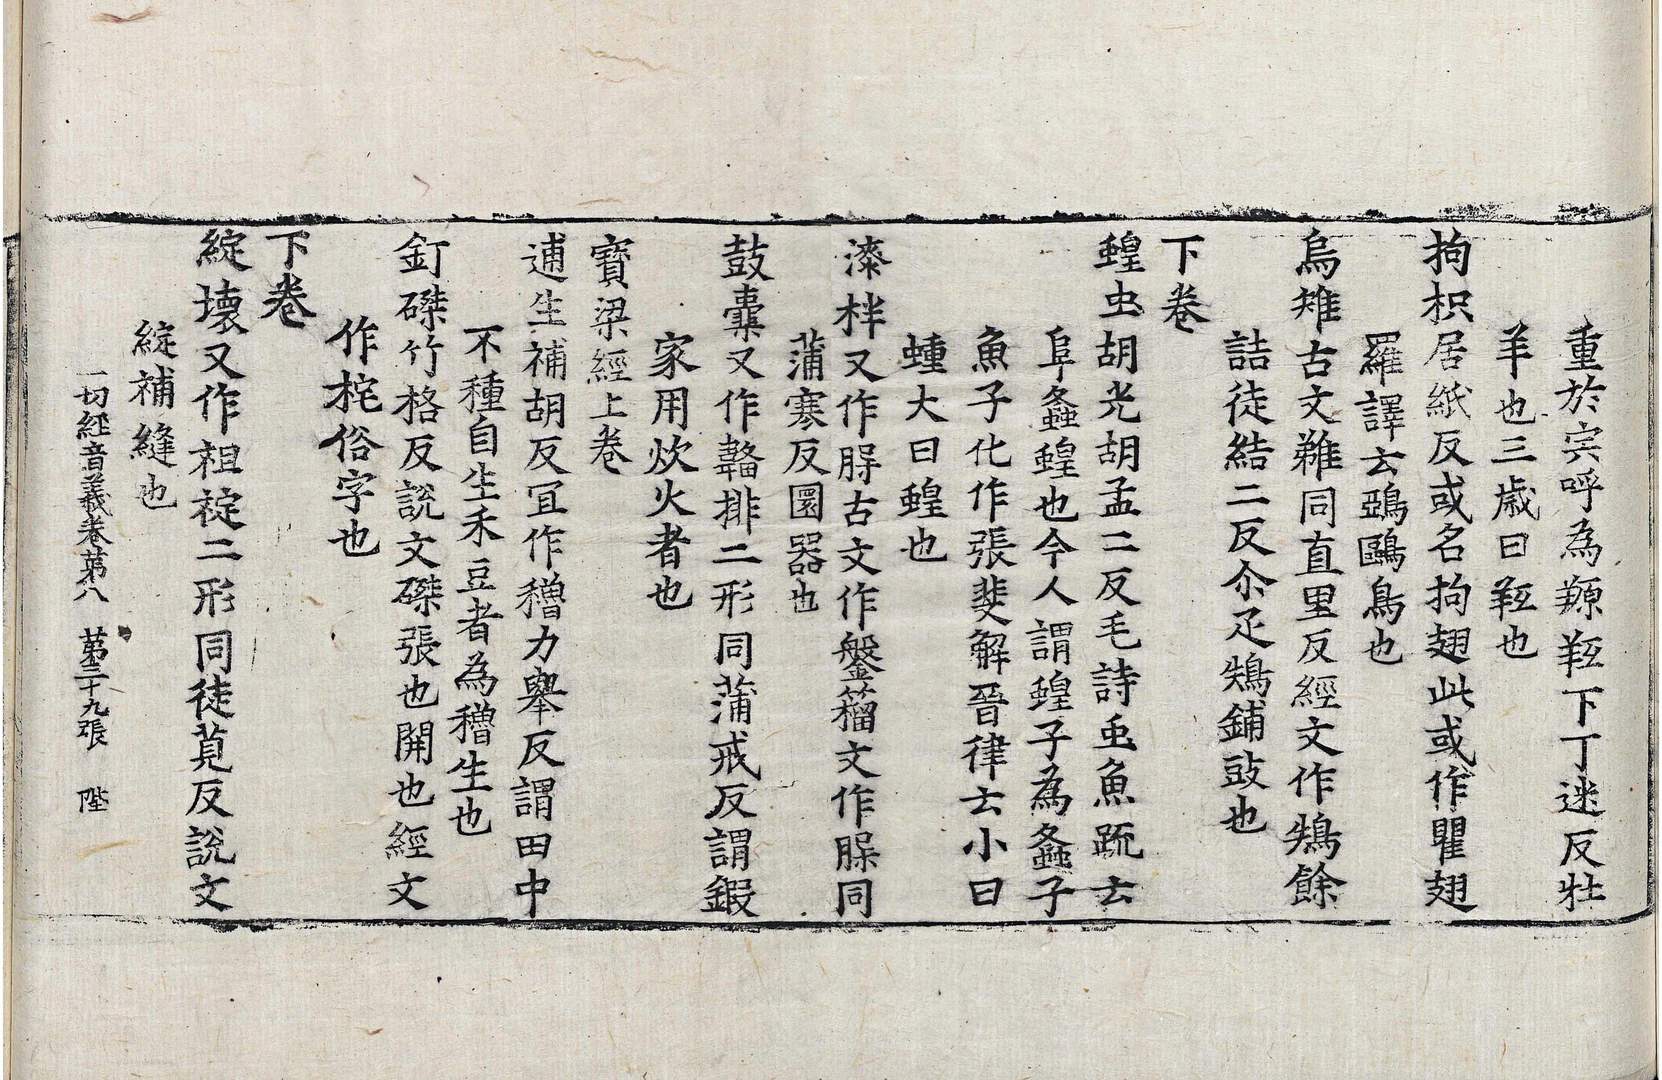 重於實呼為羱羝下丁迷反牡
羊也三歲曰羝也
拘枳居紙反或名拘翅此或作瞿翅
羅譯云鵶鷗鳥也
烏雉古文鴙同直里反經文作鴩餘
詰徒結二反尒疋鴩鋪豉也
下卷
蝗虫胡光胡孟二反毛詩虫魚疏云
阜螽蝗也今人謂蝗子為螽子
魚子化作張斐解晉律云小曰
蝩大曰蝗也
漆柈又作䏑古文作鎜籀文作𦞦同
蒲寒反圓器也
鼓橐又作韛排二形同蒲戒反謂鍛
家用炊火者也
寶梁經上卷
逋生補胡反冝作穭力舉反謂田中
不種自生禾豆者為穭生也
釘磔竹格反說文磔張也開也經文
作挓俗字也
下卷
綻壞又作袒䘺二形同徒莧反說文
綻補縫也
一切經音義卷第八 第三十九張 陛